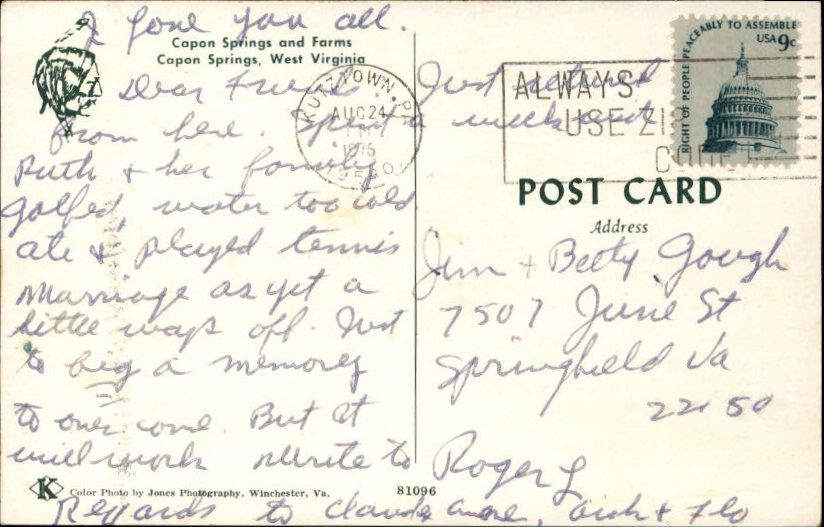 I love you all.
Capon Springs and Farms
Capon Springs, West Virginia
Dear Friends Just returned
from here. Spent a week with
Ruth & her family
golfed, water too cold
ate & played tennis
Marriage as yet a
little ways off. Just
to big a memory
to over come. But it
will work Write to Roger L
Regards to Claude & Dick & Flo
KUTZTOWN, PA
AUG 24
PM
19530
ALWAYS
USE ZIP
CODE
RIGHT OF PEOPLE PEACEABLY TO ASSEMBLE
USA 9c
POST CARD
Address
Jim + Betty Gough
7507 June St
Springfield Va
22150
K Color Photo by Jones Photography, Winchester, Va.
81096